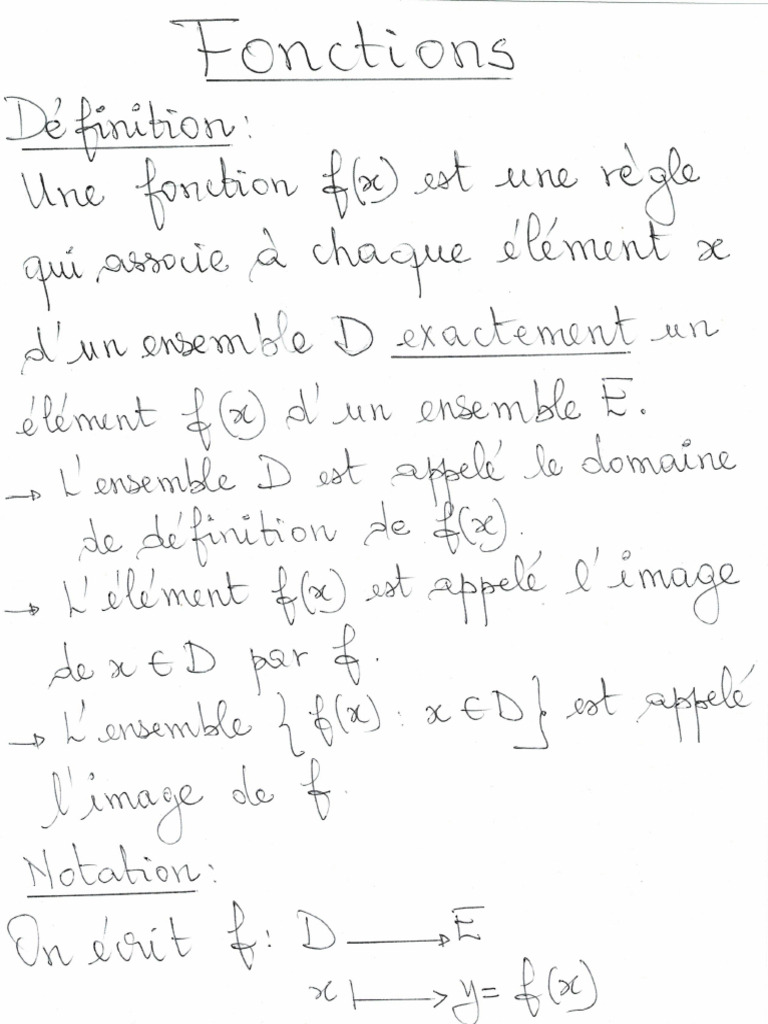 Fonctions
Définition:
Une fonction f(x) est une règle
qui associe à chaque élément x
d'un ensemble D exactement un
élément f(x) d'un ensemble E.
→ L'ensemble D est appelé le domaine
de définition de f(x).
→ L'élément f(x) est appelé l'image
de x ∈ D par f.
→ L'ensemble {f(x) : x ∈ D} est appelé
l'image de f.
Notation:
On écrit f: D ⟶ E
x ⟼ y = f(x)